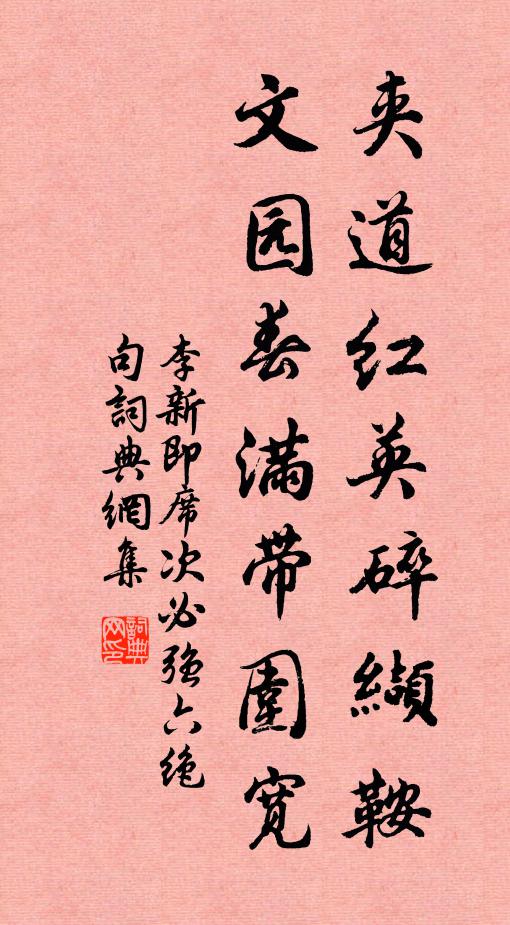 夹道红英碎缬鞍
文园春满带圍宽
李新即席次必强六绝
句詞典網集
詞典网印